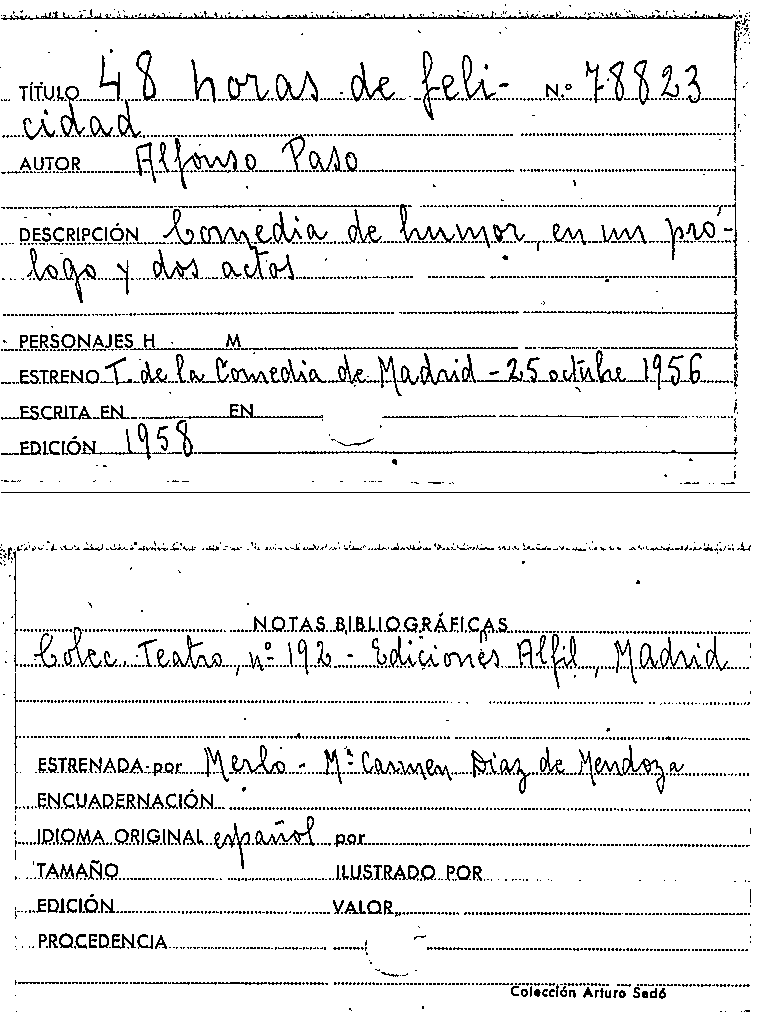 TÍTULO 48 horas de feli- N.º 78823
cidad
AUTOR Alfonso Paso
DESCRIPCIÓN Comedia de humor, en un pró-
logo y dos actos
PERSONAJES H M
ESTRENO T. de la Comedia de Madrid - 25 octubre 1956
ESCRITA EN EN
EDICIÓN 1958
NOTAS BIBLIOGRÁFICAS
Colec. Teatro, nº 192 - Ediciones Alfil, Madrid
ESTRENADA por Merlo - Mª Carmen Díaz de Mendoza
ENCUADERNACIÓN
IDIOMA ORIGINAL español por
TAMAÑO ILUSTRADO POR
EDICIÓN VALOR
PROCEDENCIA
Colección Arturo Sedó